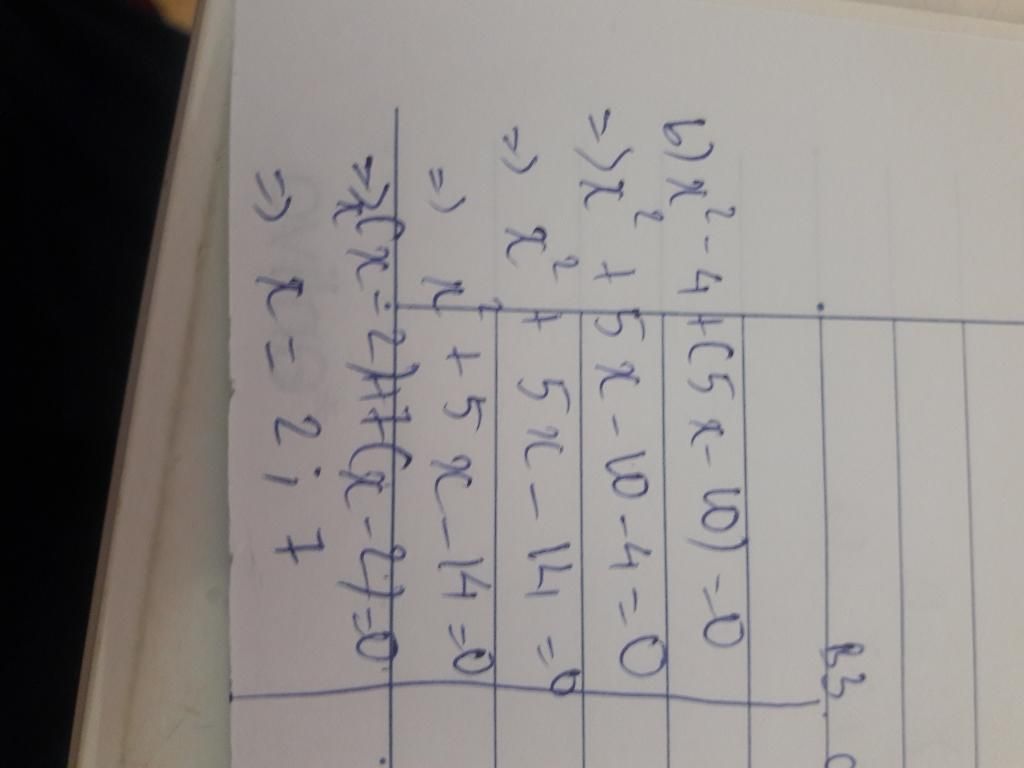 b) x² - 4 + (5x - 10) = 0
=> x² + 5x - 10 - 4 = 0
=> x² + 5x - 14 = 0
=> x² + 5x - 14 = 0
=> x(x - 2) + 7(x - 2) = 0
=> x = 2 ; 7